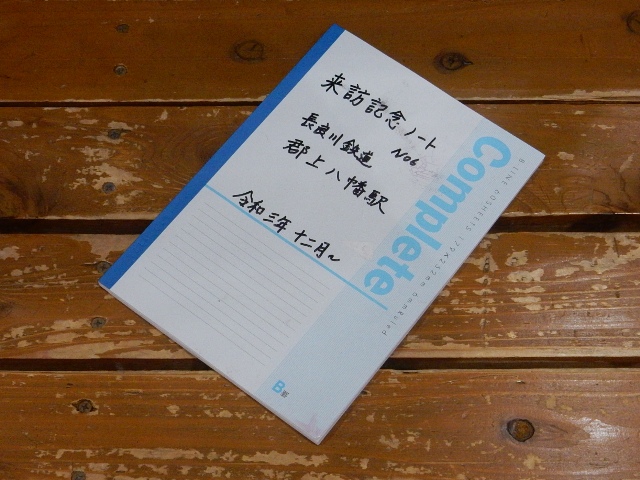 来訪記念ノート
No6
長良川鉄道
郡上八幡駅
令和三年十二月~
Complete
B罫